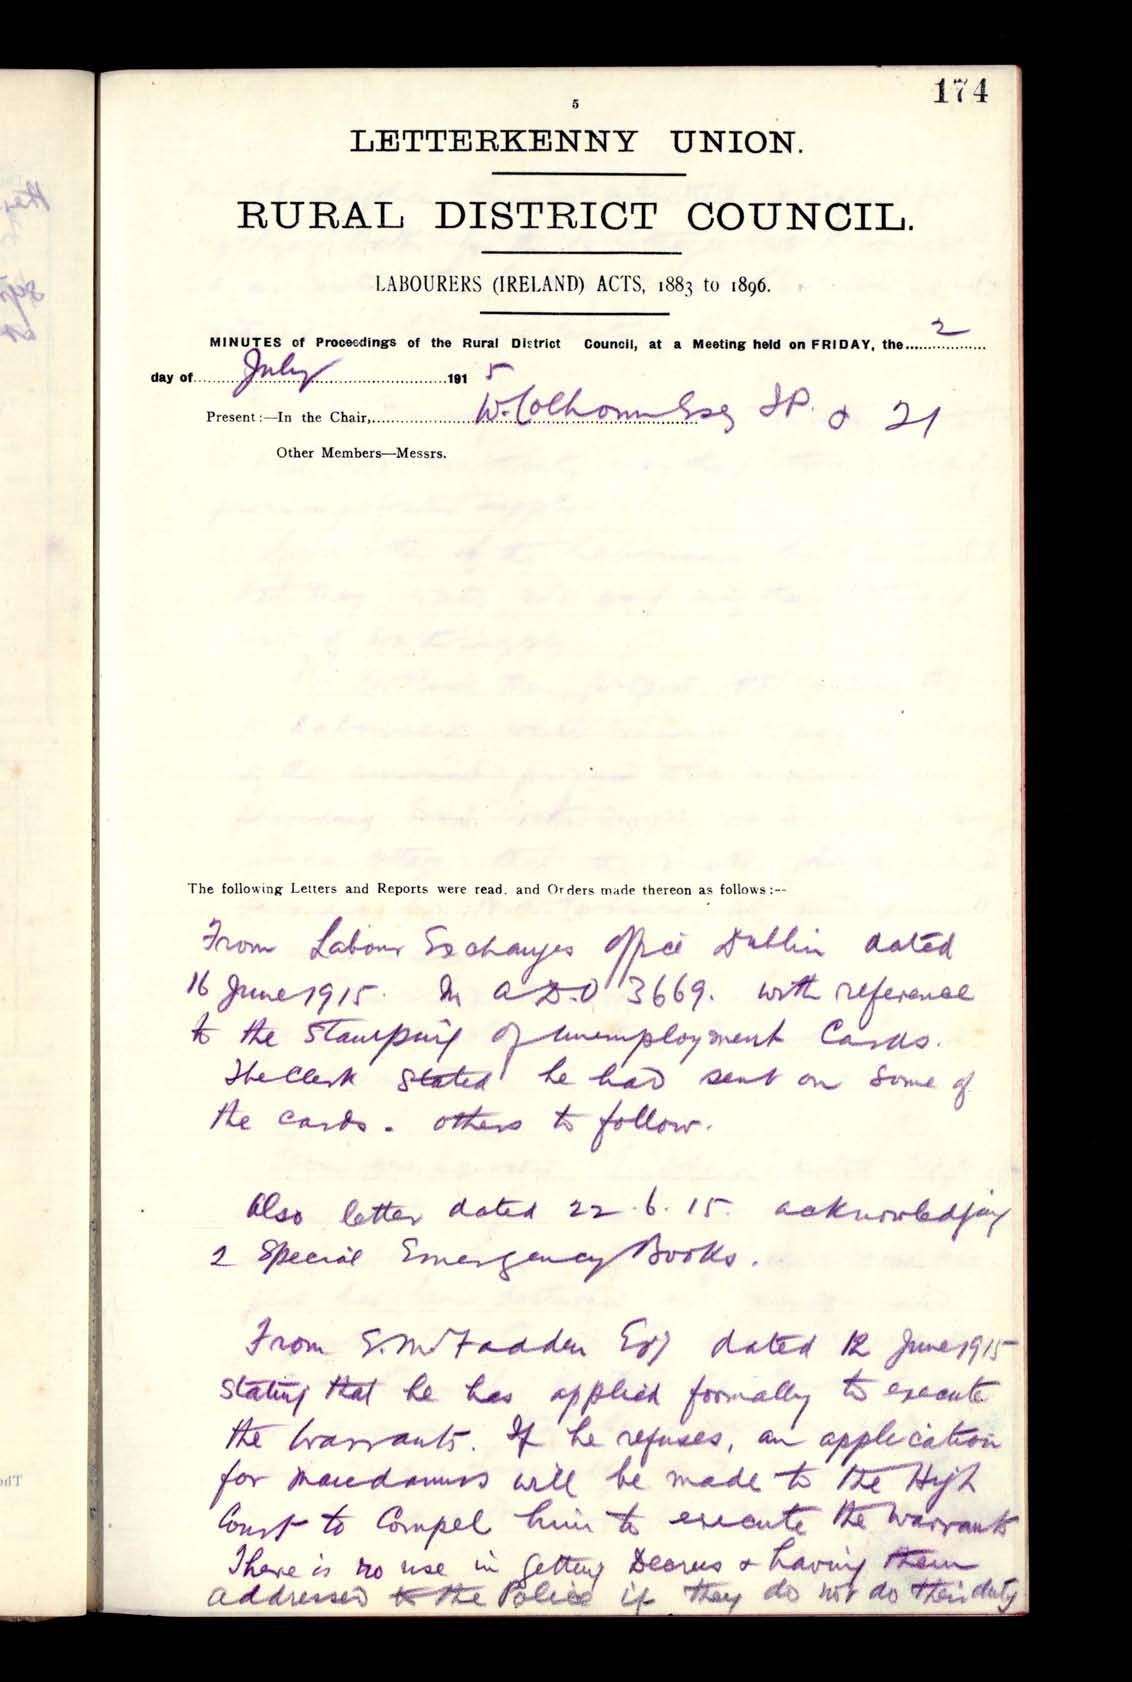 174
5
LETTERKENNY UNION.
RURAL DISTRICT COUNCIL.
LABOURERS (IRELAND) ACTS, 1883 to 1896.
MINUTES of Proceedings of the Rural District Council, at a Meeting held on FRIDAY, the 2
day of July 1915
Present:—In the Chair, W. Colhoun Esq JP. & 21
Other Members—Messrs.
The following Letters and Reports were read, and Orders made thereon as follows:--
From Labour Exchanges Office Dublin dated
16 June 1915. M A.D.O 3669. with reference
to the Stamping of unemployment Cards.
The Clerk stated he had sent on some of
the cards. others to follow.
Also letter dated 22.6.15. acknowledging
2 Special Emergency Books.
From S. McFadden Esq dated 12 June 1915
stating that he has applied formally to execute
the warrants. If he refuses, an application
for Macdamus will be made to the High
Court to Compel him to execute the warrants
There is no use in getting Decrees & having them
addressed to the Police if they do not do their duty